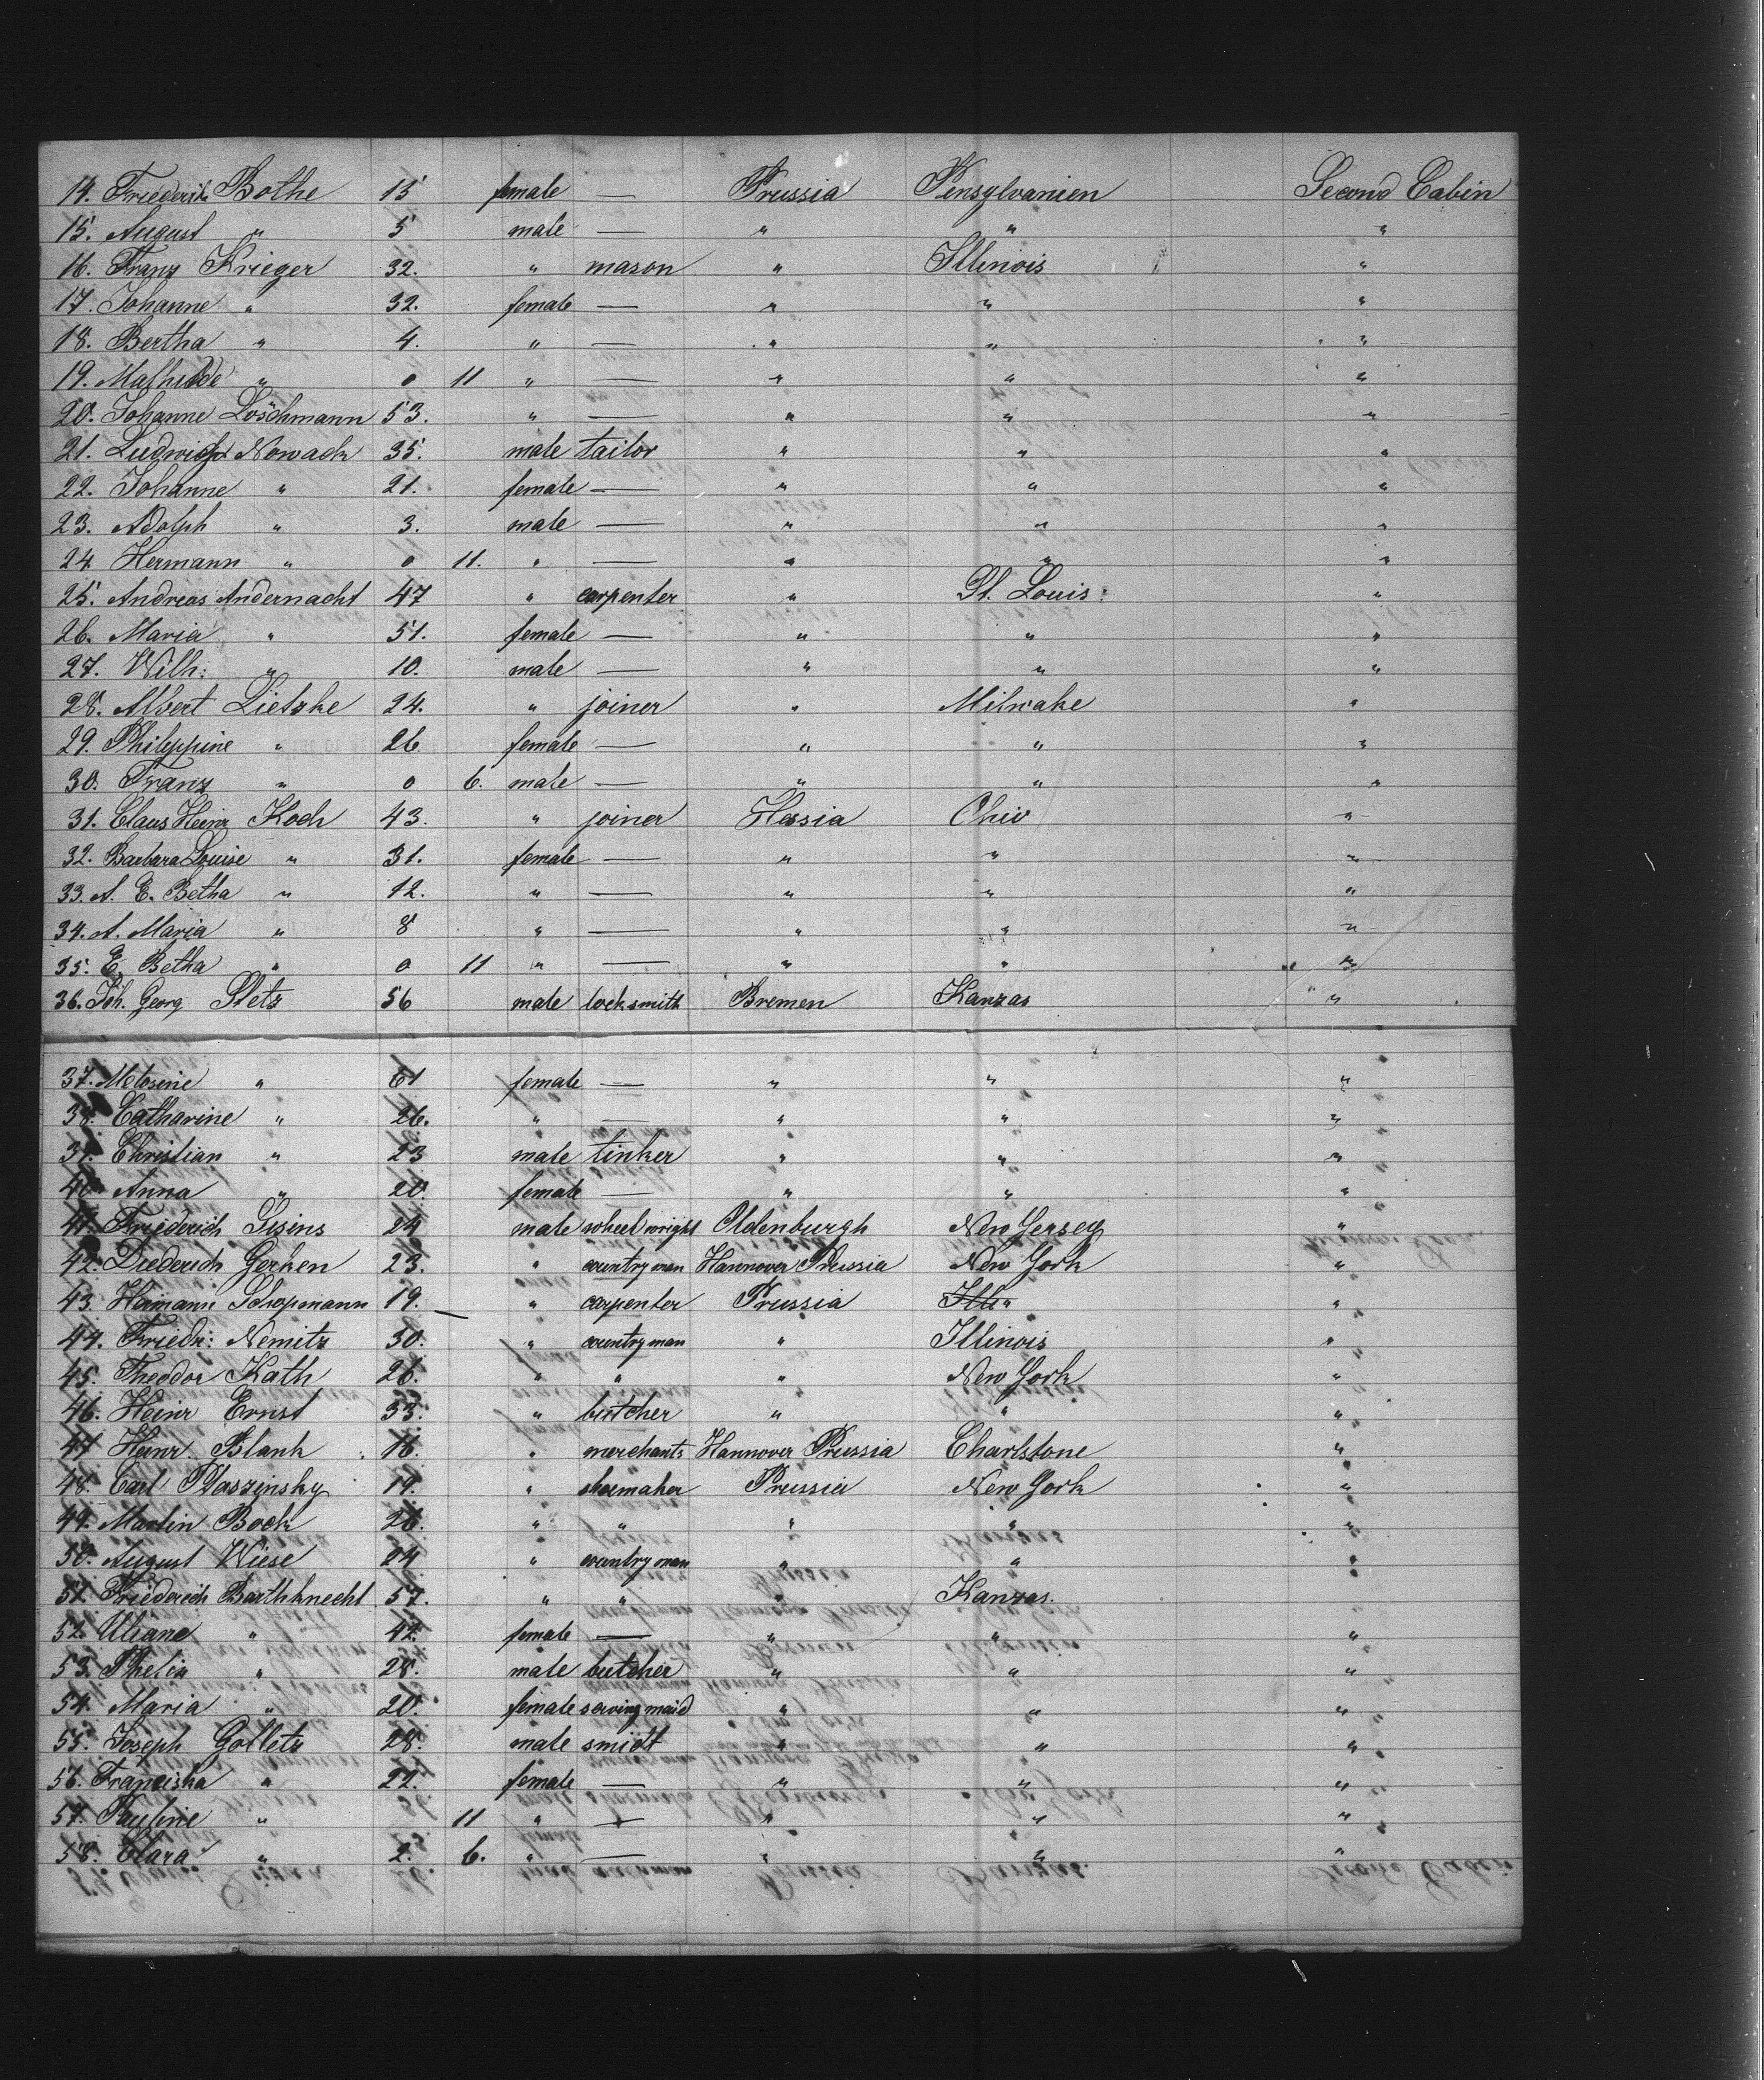 14. Friederike Bothe 15 female — Prussia Pensylvanien Second Cabin
15. August " 5 male — " " "
16. Franz Krieger 32. " mason " Illinois "
17. Johanne " 32. female — " " "
18. Bertha " 4. " — " " "
19. Mathilde " 0 11 " — " " "
20. Johanne Löschmann 53. " — " " "
21. Ludwich Nowack 35. male tailor " " "
22. Johanne " 21. female — " " "
23. Adolph " 3. male — " " "
24. Hermann " 0 11. " — " " "
25. Andreas Andernacht 47 " carpenter " St. Louis "
26. Maria " 51. female — " " "
27. Wilh: " 10. male — " " "
28. Albert Lietzke 24. " joiner " Milwake "
29. Philippine " 26 female — " " "
30. Franz " 0 6. male — " " "
31. Claus Heinr Koch 43. " joiner Hessia Ohio "
32. Barbara Louise " 31. female — " " "
33. A. E. Betha " 12. " — " " "
34. A. Maria " 8 " — " " "
35. E. Betha " 0 11 " — " " "
36. Joh. Georg Stetz 56 male locksmith Bremen Kanzas "
37. Melosine " 61 female — " " "
38. Catharine " 26. " — " " "
39. Christian " 23 male tinker " " "
40. Anna " 20. female — " " "
41. Friederich 24 male wheelwright Oldenburgh New Jersey "
42. Diederich Gerken 23. " countryman Hannover Prussia New York "
43. Hermann Schopmann 19. " carpenter Prussia Ill. "
44. Friedr: Nemitz 30. " countryman " Illinois "
45. Theodor Kath 26. " " " New York "
46. Heinr Ernst 33. " butcher " " "
47. Heinr. Blank 16. " merchants Hannover Prussia Charlstone "
48. Carl Plaszinsky 19. " shoemaker Prussia New York "
49. Martin Bock 26. " " " " "
50. August Wiese 24 " countryman " " "
51. Friederich Barthknecht 57. " " " Kanzas. "
52. " 42. female — " " "
53. Phelix " 28. male butcher " " "
54. Maria " 20. female serving maid " " "
55. Joseph Golletz 28. male smidt " " "
56. Francisha " 22. female — " " "
57. Pauline " 11 " — " " "
58. Clara " 2. 6. " — " " "